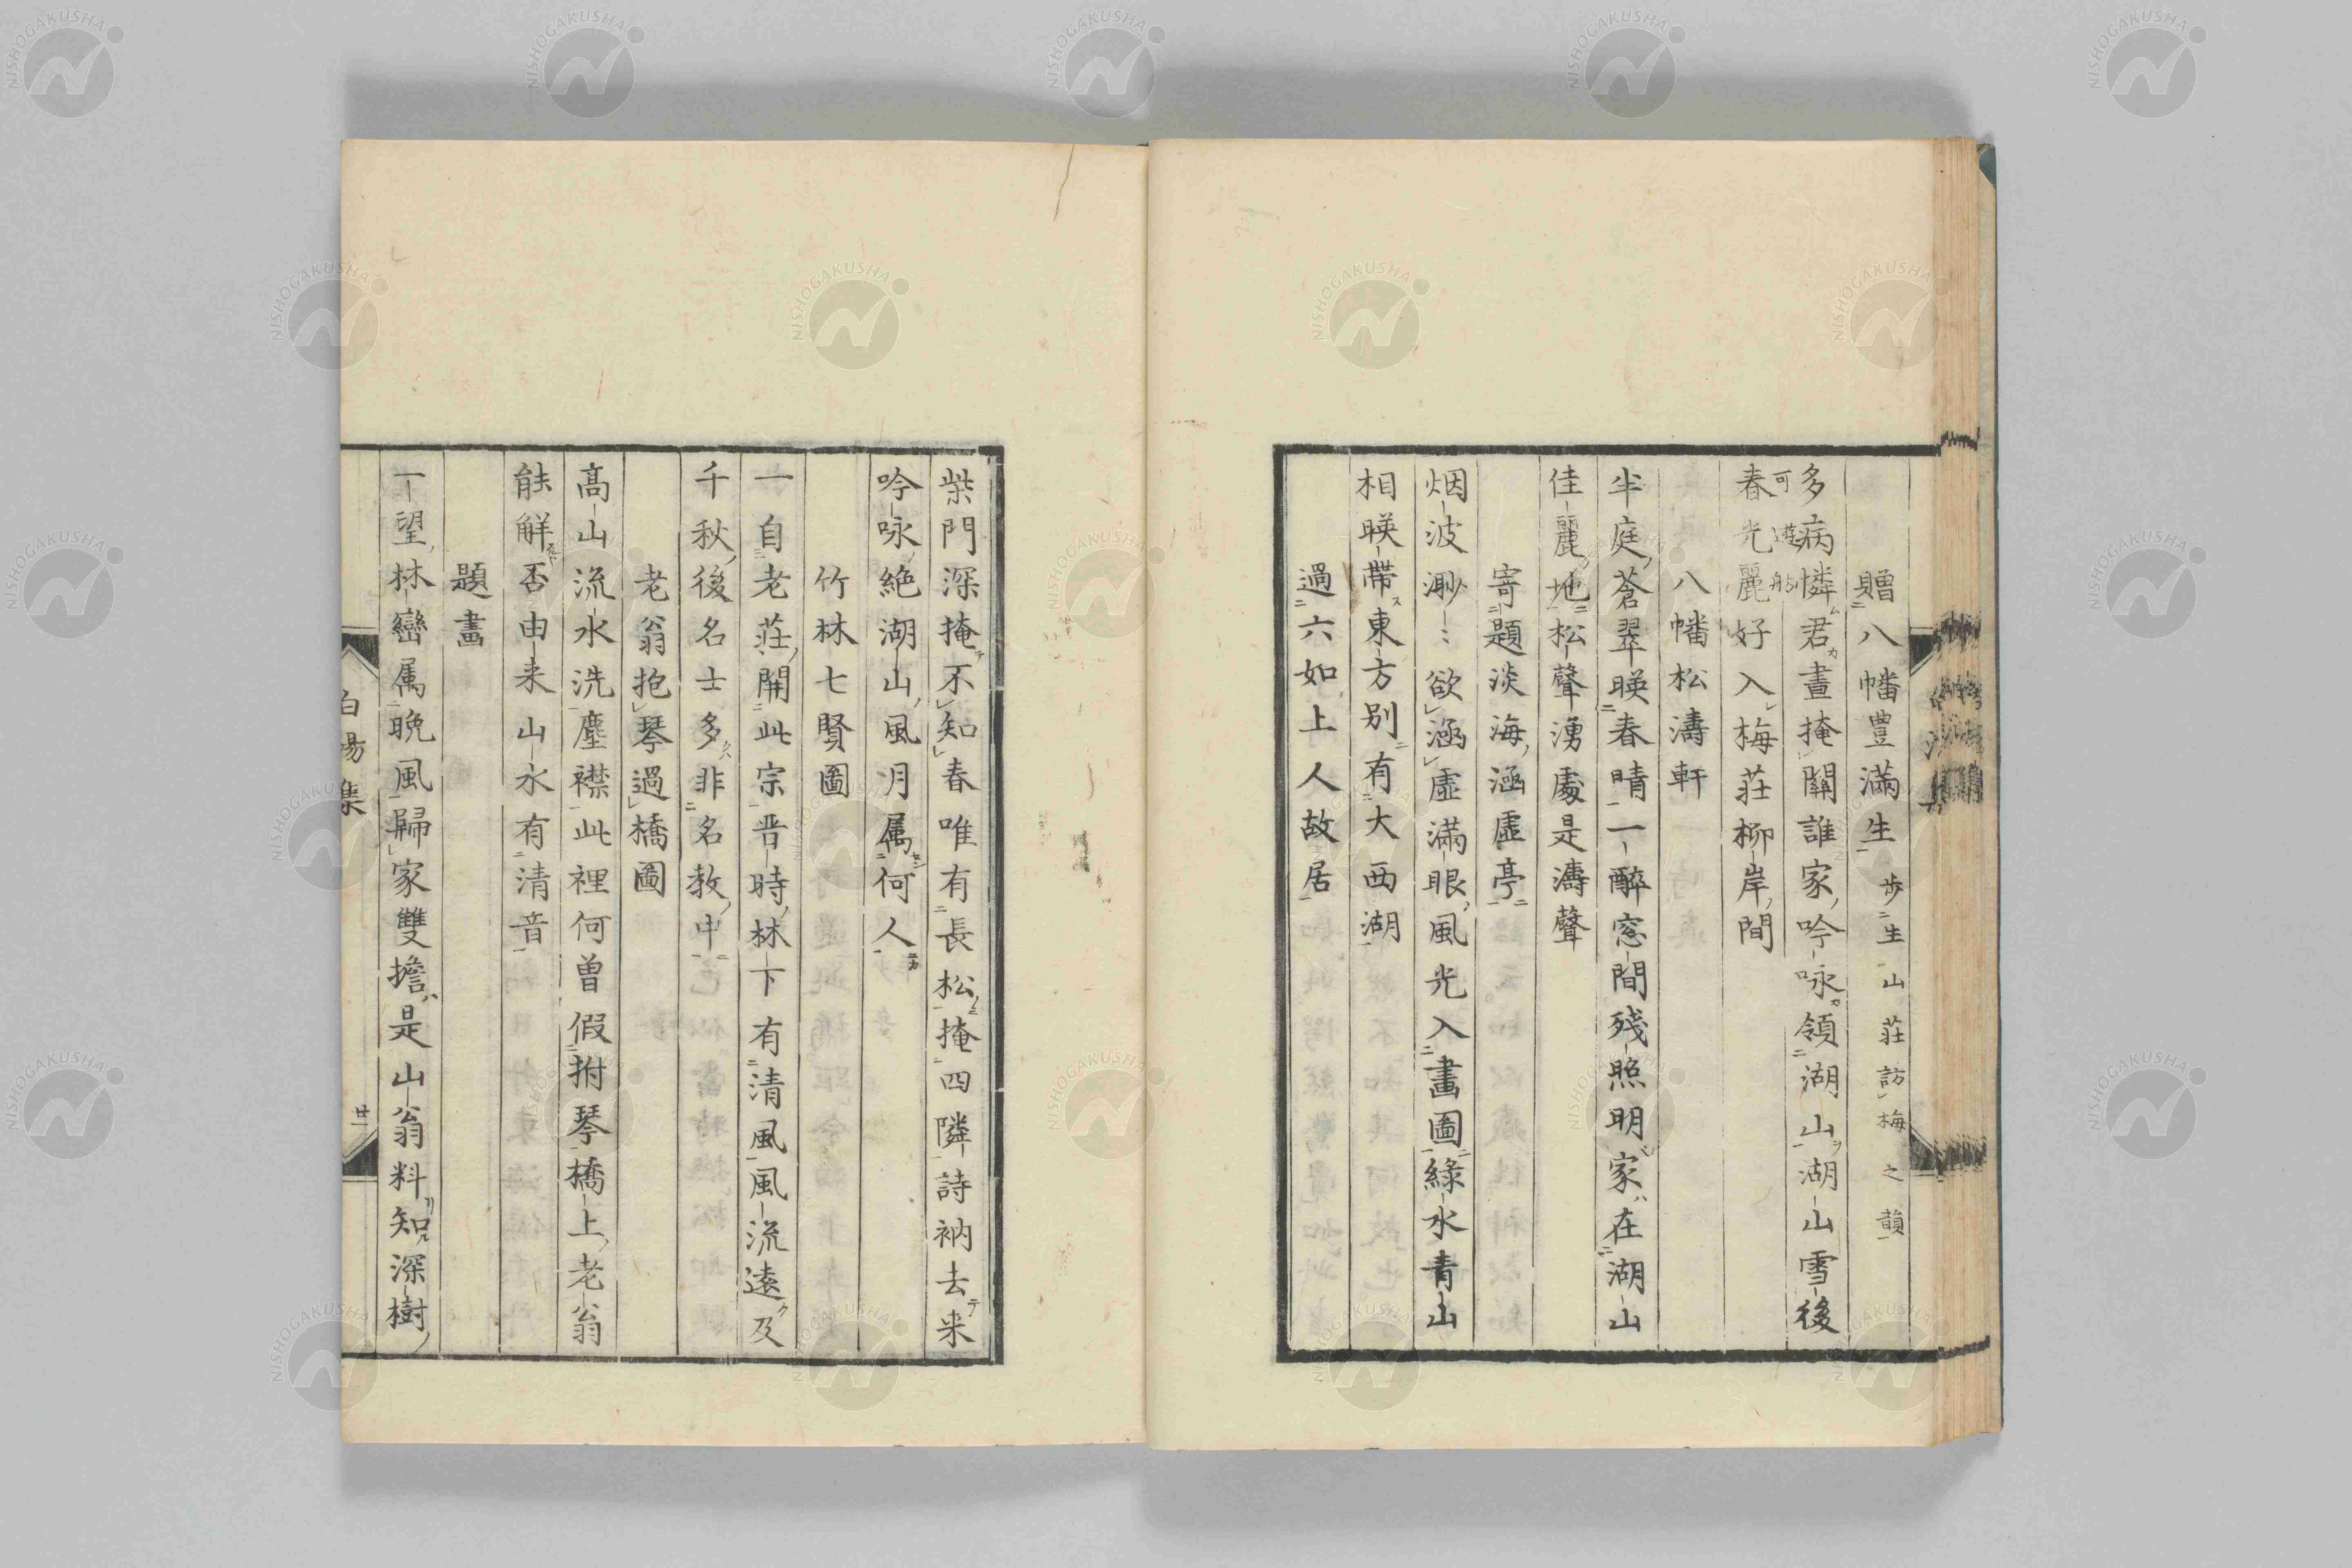 贈八幡豊滿生 歩生山莊訪梅之韻
多病憐君晝掩關誰家吟咏領湖山湖山雪後
可遊舫
春光麗好入梅莊柳岸間
八幡松濤軒
半庭蒼翠暎春晴一醉窓間殘照明家在湖山
佳麗地松聲湧處是濤聲
寄題淡海涵虛亭
烟波渺〻欲涵虛滿眼風光入畫圖綠水青山
相暎帶東方別有大西湖
過六如上人故居
柴門深掩不知春唯有長松掩四隣詩衲去来
吟咏絶湖山風月属何人
竹林七賢圖
一自老莊開此宗晋時林下有清風風流遠及
千秋後名士多非名教中
老翁抱琴過橋圖
高山流水洗塵襟此裡何曽假拊琴橋上老翁
能解否由来山水有清音
題畫
一望林巒属晩風歸家雙擔是山翁料知深樹
白楊集
廿一